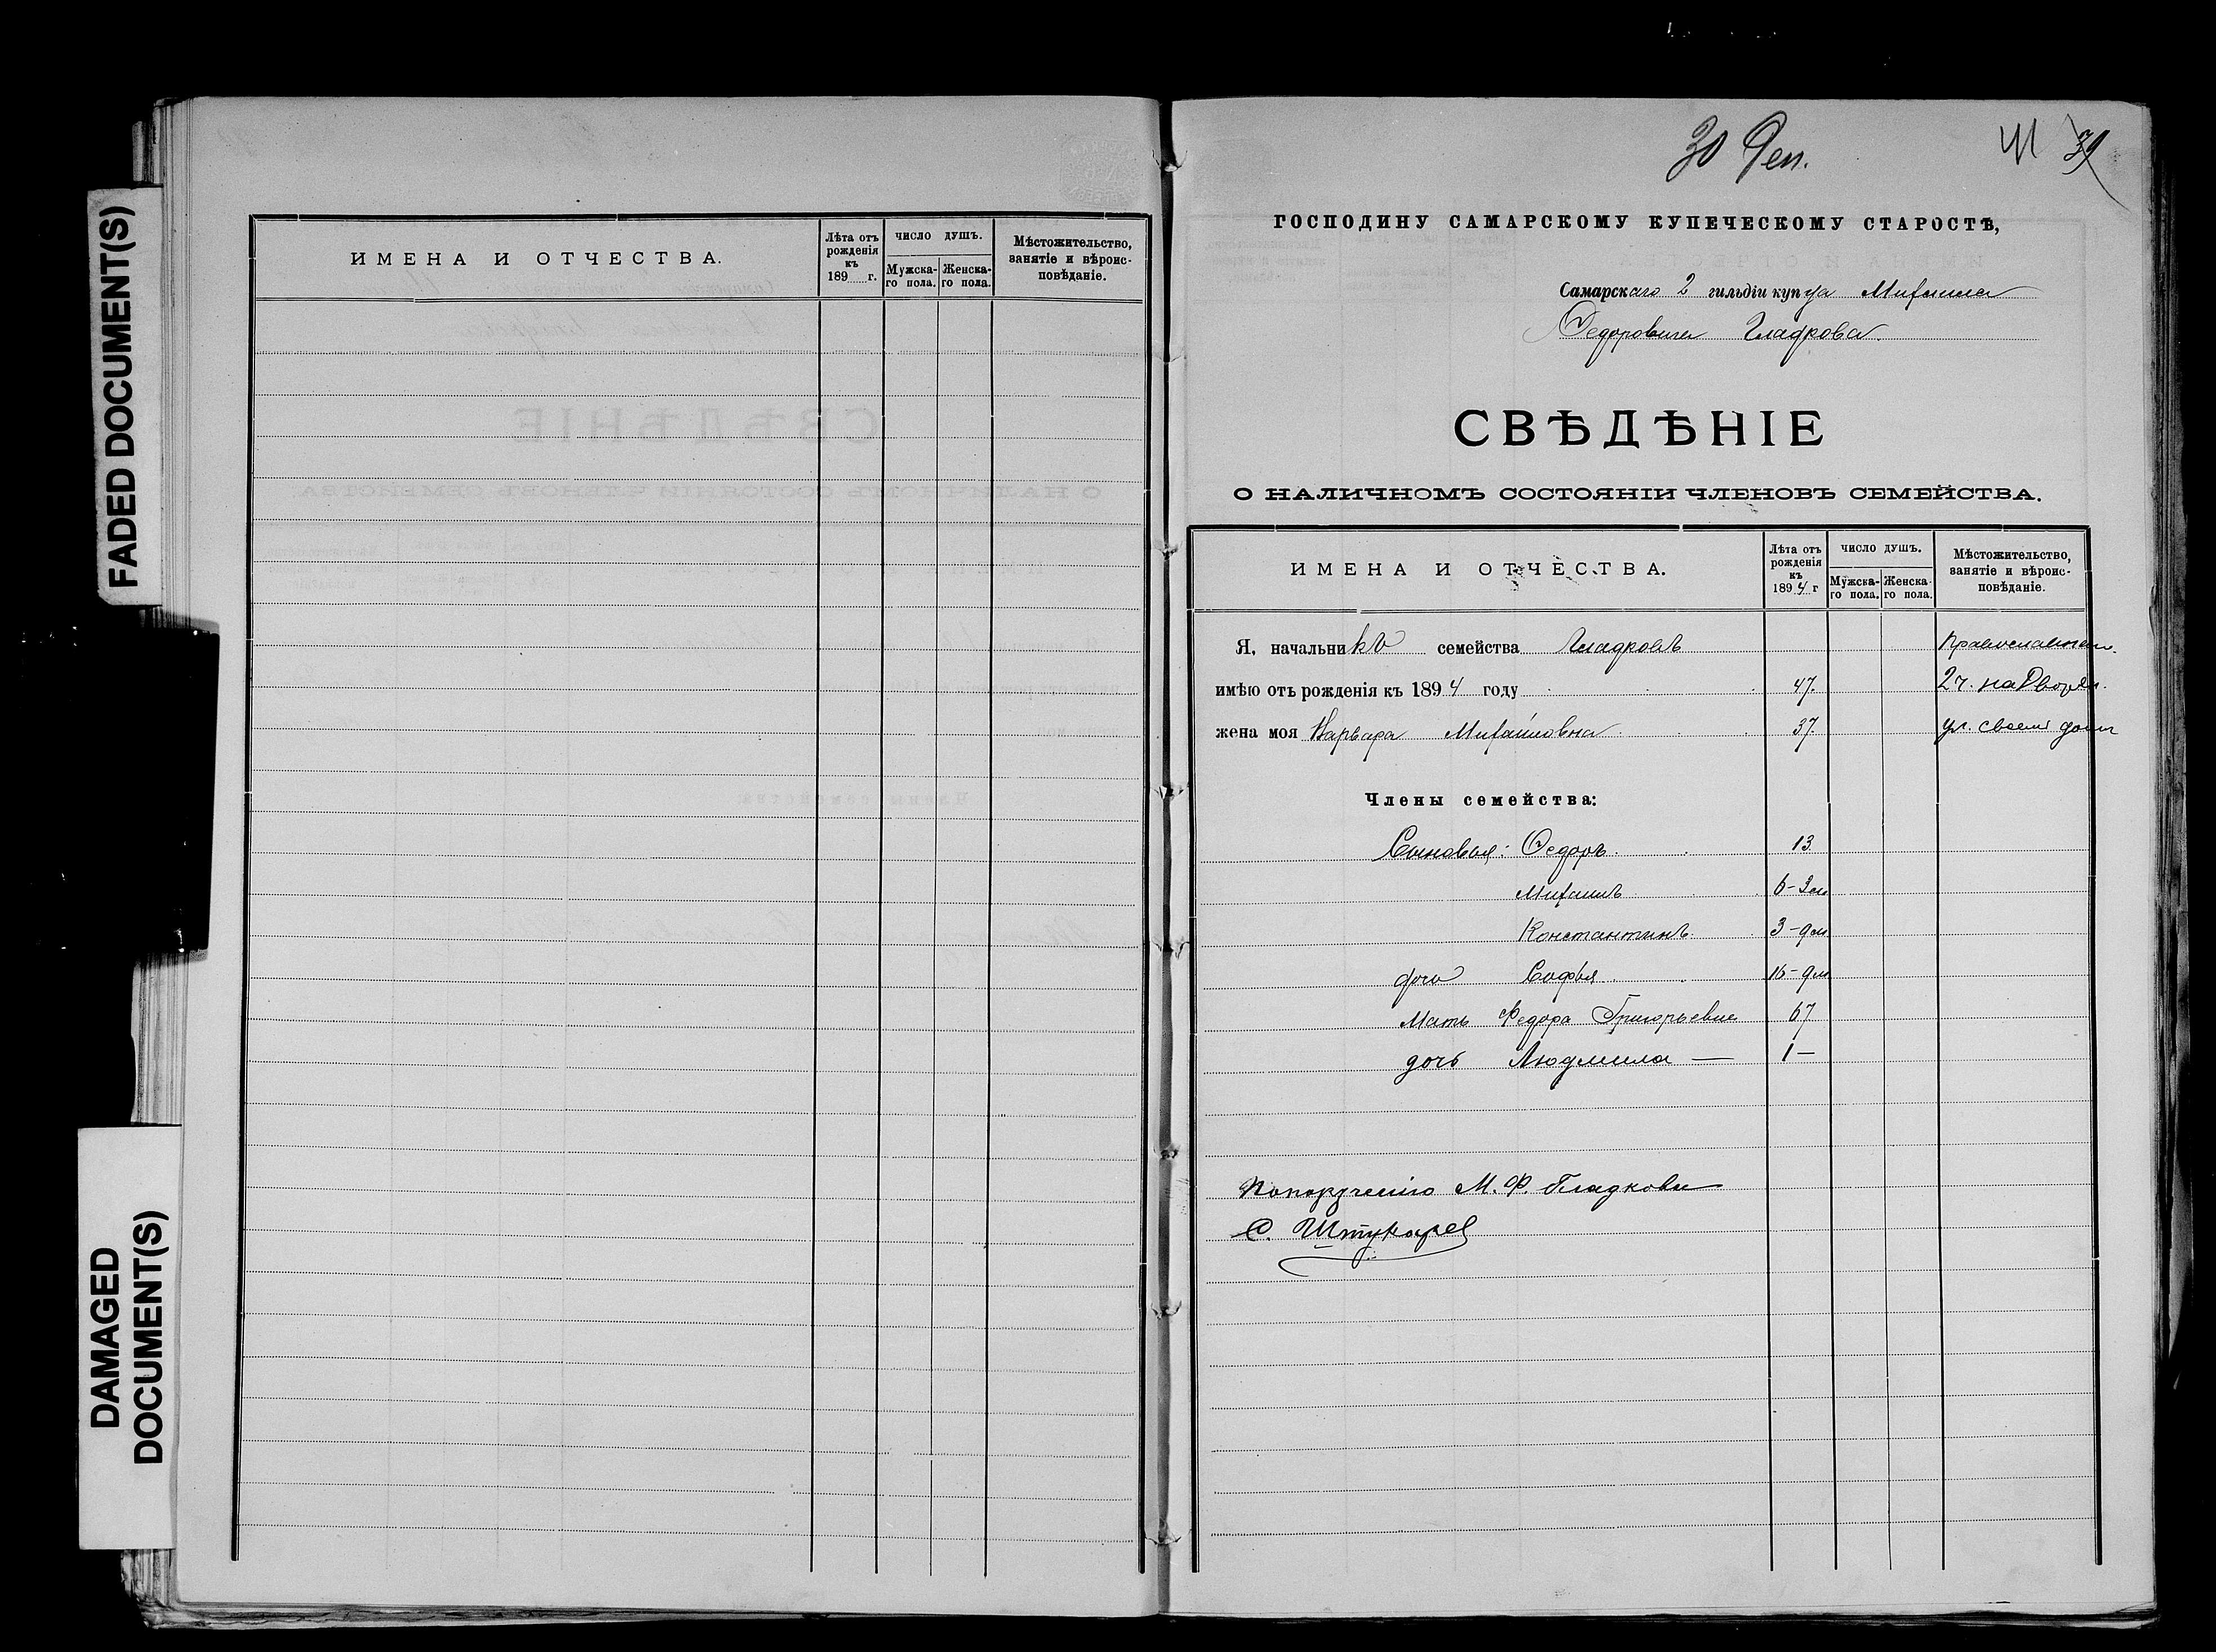 FADED DOCUMENT(S)
DAMAGED
DOCUMENT(S)
ИМЕНА И ОТЧЕСТВА.
Лѣта отъ
рожденія
къ
189 г.
число душъ.
Мужска-
го пола.
Женска-
го пола.
Мѣстожительство,
занятіе и вѣроис-
повѣданіе.
30 Ден.
41 39
ГОСПОДИНУ САМАРСКОМУ КУПЕЧЕСКОМУ СТАРОСТѢ,
Самарскаго 2 гильдіи купца Михаила
Ѳедоровича Гладкова.
СВѢДѢНІЕ
О НАЛИЧНОМЪ СОСТОЯНІИ ЧЛЕНОВЪ СЕМЕЙСТВА.
ИМЕНА И ОТЧЕСТВА.
Лѣта отъ
рожденія
къ
1894 г
число душъ.
Мужска-
го пола.
Женска-
го пола.
Мѣстожительство,
занятіе и вѣроис-
повѣданіе.
Я, начальникъ семейства Гладковъ Православнаго.
имѣю отъ рожденія къ 1894 году 47. 2 ч. на Дворян.
жена моя Варвара Михайловна 37. ул. своемъ домѣ
Члены семейства:
Сыновья: Ѳедоръ. 13
Михаилъ 6-3 м
Константинъ. 3-9 м
дочь Софья 16-9 м
Мать Федора Григорьевна 67
дочь Людмила — 1 —
По порученію М. Ф. Гладкова
С. Штукарев